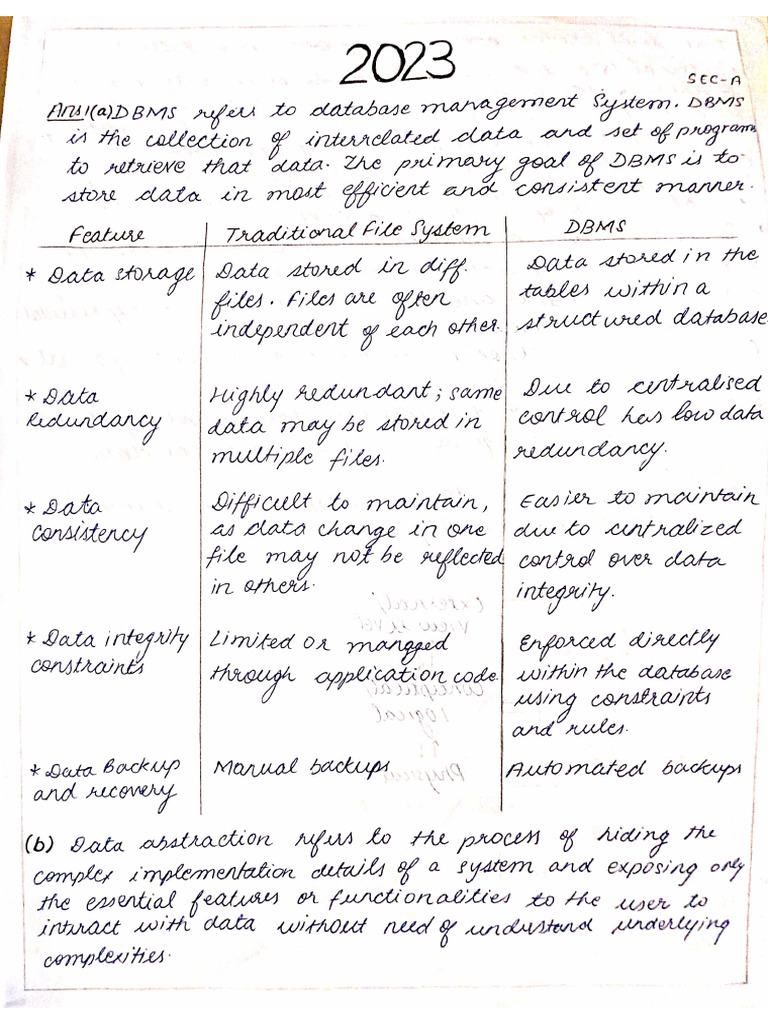 2023
SEC-A
Ans1(a) DBMS refers to database management System. DBMS
is the collection of interrelated data and set of programs
to retrieve that data. The primary goal of DBMS is to
store data in most efficient and consistent manner.
Feature | Traditional File System | DBMS
* Data storage | Data stored in diff. | Data stored in the
files. Files are often | tables within a
independent of each other. | structured database.
* Data | Highly redundant; same | Due to centralised
Redundancy | data may be stored in | control has low data
multiple files. | redundancy.
* Data | Difficult to maintain, | Easier to maintain
consistency | as data change in one | due to centralized
file may not be reflected | control over data
in others. | integrity.
* Data integrity | Limited or managed | Enforced directly
constraints | through application code. | within the database
using constraints
and rules.
* Data Backup | Manual backups | Automated backups
and recovery
(b) Data abstraction refers to the process of hiding the
complex implementation details of a system and exposing only
the essential features or functionalities to the user to
interact with data without need of understand underlying
complexities.